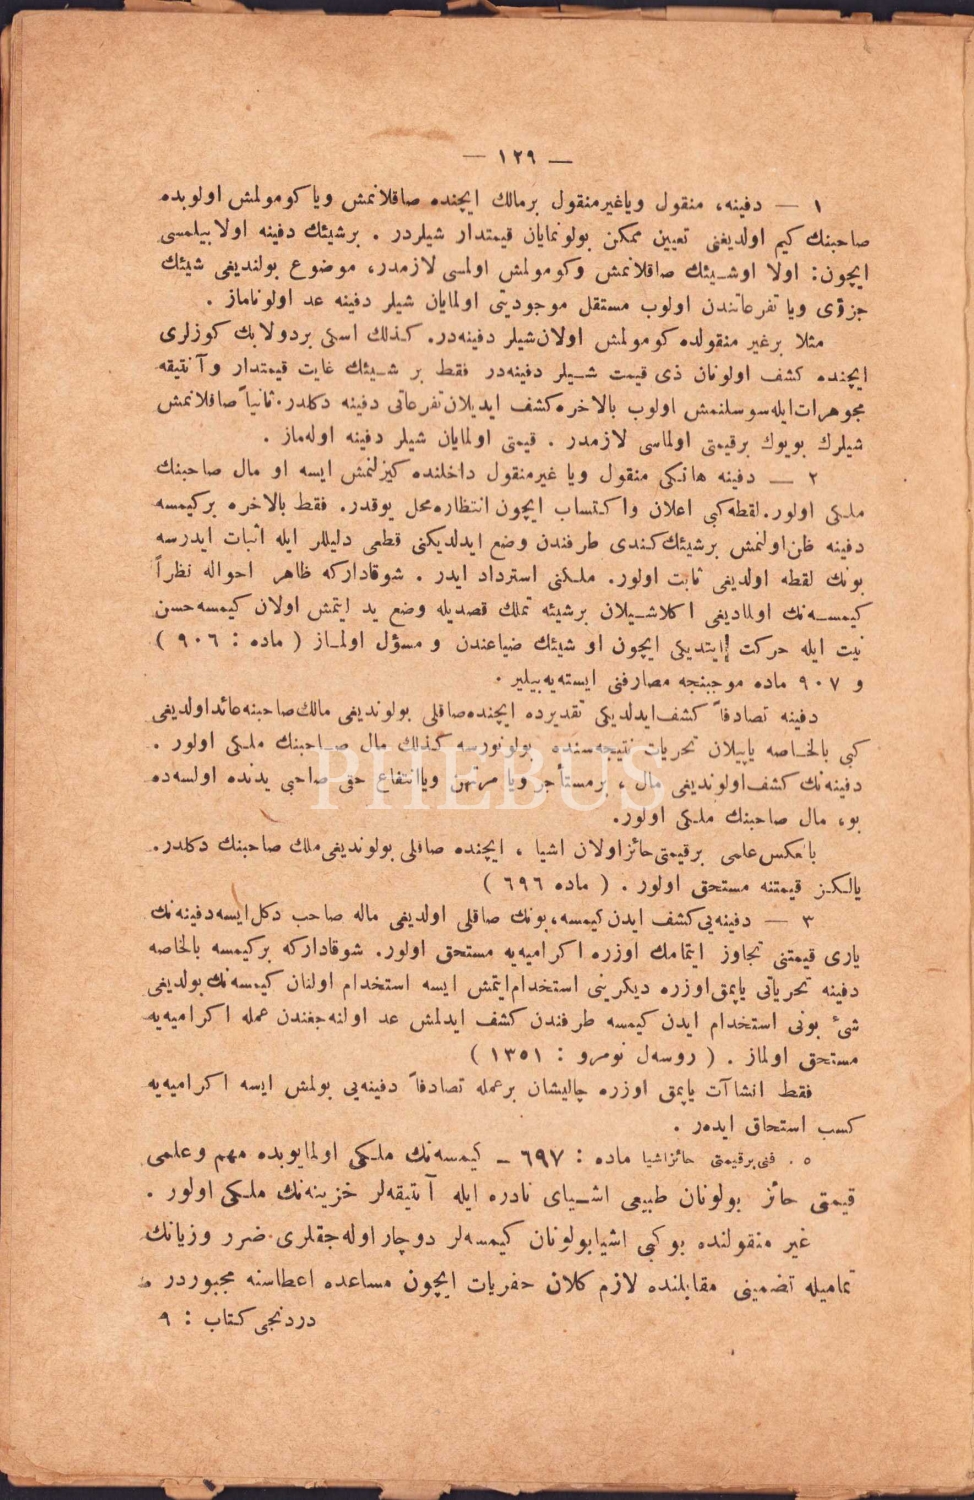 — ١٢٩ —
١ — دفینه، منقول ویاغیرمنقول برمالك ایچنده صاقلانمش ویا كومولمش اولوبده
صاحبنك كیم اولدیغی تعیین ممكن بولونمایان قیمتدار شیلردر . برشیئك دفینه اولابیلمسی
ایچون: اولا اوشیئك صاقلانمش وكومولمش اولمسی لازمدر، موضوع بولندیغی شیئك
جزؤی ویا تفرعاتندن اولوب مستقل موجودیتی اولمایان شیلر دفینه عد اولوناماز .
مثلا برغیر منقولده كومولمش اولان شیلر دفینه‌در. كذلك اسكی بردولابك كوزلری
ایچنده كشف اولونان ذی قیمت شیلر دفینه‌در فقط بر شیئك غایت قیمتدار وآنتیقه
مجوهرات ایله سوسلنمش اولوب بالاخره كشف ایدیلان تفرعاتی دفینه دكلدر. ثانیاً صاقلانمش
شیلرك بویوك برقیمتی اولماسی لازمدر . قیمتی اولمایان شیلر دفینه اوله‌ماز .
٢ — دفینه هانكی منقول ویا غیرمنقول داخلنده كیزلنمش ایسه او مال صاحبنك
ملكی اولور. لقطه كبی اعلان واكتساب ایچون انتظاره محل یوقدر. فقط بالاخره بركیمسه
دفینه ظن اولنمش برشیئك كندی طرفندن وضع ایدلدیكنی قطعی دلیللر ایله اثبات ایدرسه
بونك لقطه اولدیغی ثابت اولور. ملكنی استرداد ایدر . شوقدارکه ظاهر احواله نظراً
كیمسه‌نك اولمادیغی اكلاشیلان برشیئه تملك قصدیله وضع ید ایتمش اولان كیمسه حسن
نیت ایله حركت ایتدیكی ایچون او شیئك ضیاعندن ومسؤل اولماز ( ماده : ٩٠٦ )
و ٩٠٧ ماده موجبنجه مصارفنی ایسته‌یه‌بیلیر .
دفینه تصادفاً كشف ایدلدیكی تقدیرده ایچنده صاقلی بولوندیغی مالك صاحبنه عائد اولدیغی
كبی بالخاصه یاپیلان تحریات نتیجه‌سنده بولونورسه كذلك مال صاحبنك ملكی اولور .
دفینه‌نك كشف اولوندیغی مال ، برمستأجر ویا مرتهن ویاانتفاع حق صاحبی یدنده اولسه‌ده
بو، مال صاحبنك ملكی اولور.
بالعكس علمی برقیمتی حائز اولان اشیا ، ایچنده صاقلی بولوندیغی ملك صاحبنك دكلدر.
یالكز قیمتنه مستحق اولور . ( ماده ٦٩٦ )
٣ — دفینه‌یی كشف ایدن كیمسه، بونك صاقلی اولدیغی ماله صاحب دكل ایسه دفینه‌نك
یاری قیمتنی تجاوز ایتمامك اوزره اكرامیه‌یه مستحق اولور. شوقدارکه بركیمسه بالخاصه
دفینه تحریاتی یاپمق اوزره دیكرینی استخدام ایتمش ایسه استخدام اولنان كیمسه‌نك بولدیغی
شیٴ بونی استخدام ایدن كیمسه طرفندن كشف ایدلمش عد اولنه‌جغندن عمله اكرامیه‌یه
مستحق اولماز . ( روسه‌ل نومرو : ١٣٥١ )
فقط انشاآت یاپمق اوزره چالیشان برعمله تصادفاً دفینه‌یی بولمش ایسه اكرامیه‌یه
كسب استحقاق ایده‌ر .
٥ . فنی برقیمتی حائز اشیا ماده : ٦٩٧ ـ كیمسه‌نك ملكی اولمایوبده مهم وعلمی
قیمتی حائز بولونان طبیعی اشیای نادره ایله آنتیقه‌لر خزینه‌نك ملكی اولور .
غیر منقولنده بو كبی اشیا بولونان كیمسه‌لر دوچار اوله‌جقلری ضرر وزیانك
تمامیله تضمینی مقابلنده لازم كلان حفریات ایچون مساعده اعطاسنه مجبوردر
دردنجی كتاب : ٩
PHEBUS